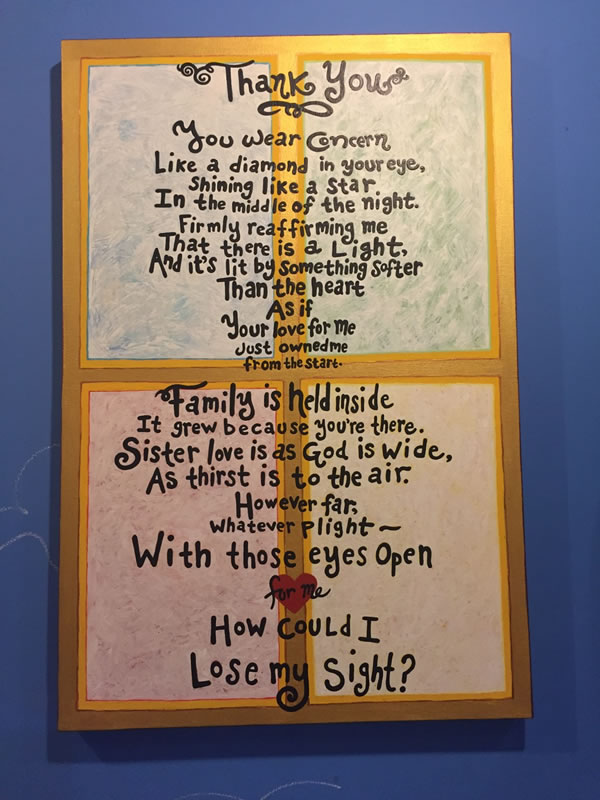 Thank You
You wear Concern
Like a diamond in your eye,
Shining like a star
In the middle of the night.
Firmly reaffirming me
That there is a Light,
And it's lit by something softer
Than the heart
As if
Your love for me
Just owned me
from the start.
Family is held inside
It grew because you're there.
Sister love is as God is wide,
As thirst is to the air.
However far,
whatever plight~
With those eyes Open
for me
How could I
Lose my Sight?